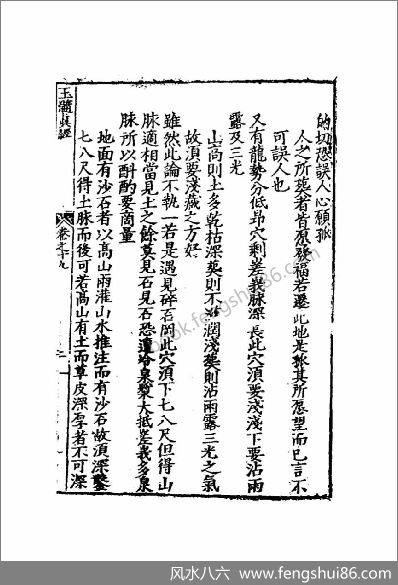 的切恐誤人心願孤
人之所葬者皆願發福若遷此地是孤其所愿望而已言不
可誤人也
又有龍勢分低昂穴剩差異脉深長此穴須要淺淺下要沾雨
露及三光
山高則土多乾枯深葬則不滋潤淺葬則沾雨露三光之氣
故須要淺藏之方好
雖然此論不執一若是遇見碎石岡此穴須下七八尺但得山
脉適相當見土之餘莫見石見石恐遭冷泉聚大抵差義多泉
脉所以酙酌要商量
地面有沙石者以高山雨灌山水推注而有沙石故須深鑿
七八尺得土脉而後可若高山有土而草皮深厚者不可深
玉髓真經
卷之十九
二
book.fengshui86.com
风水八六 | www.fengshui86.com